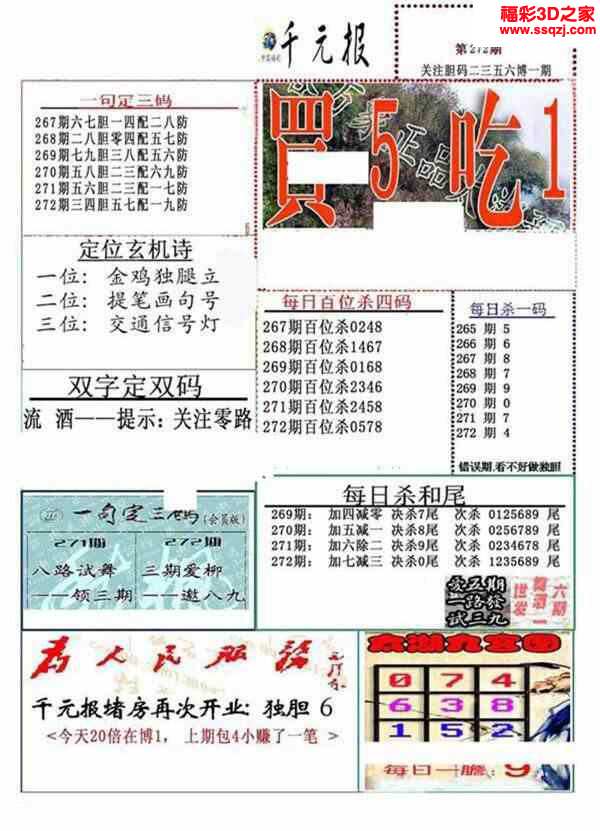 福彩3D之家
www.ssqzj.com
千元报
第272期
关注胆码二三五六博一期
一句定三码
267期六七胆一四配二八防
268期二八胆零四配五七防
269期七九胆三八配五六防
270期五八胆二三配六九防
271期五六胆二三配一七防
272期三四胆五七配一九防
買5吃1
定位玄机诗
一位: 金鸡独腿立
二位: 提笔画句号
三位: 交通信号灯
每日百位杀四码
267期百位杀0248
268期百位杀1467
266期百位杀0168
270期百位杀2346
271期百位杀2458
272期百位杀0578
每日杀一码
265 期 5
266 期 6
267 期 8
268 期 7
269 期 9
270 期 0
271 期 7
272 期 4
错误期,看不好做独胆
双字定双码
流 酒——提示: 关注零路
一句定三码(会员版)
271期
八路试舞
——领三期
272期
三期爱柳
——邀八九
每日杀和尾
269期: 加四减零 决杀7尾 次杀 0125689 尾
270期: 加五减一 决杀8尾 次杀 0256789 尾
271期: 加六除二 决杀9尾 次杀 0234678 尾
272期: 加七减三 决杀0尾 次杀 1235689 尾
爱五期
一路發
试三九
六期
舞酒一
世发
为人民服务
千元报堵房再次开业: 独胆 6
<今天20倍在博1, 上期包4小赚了一笔 >
九宫图
0 7 4
6 3 8
1 5 2
每日一胆: 9